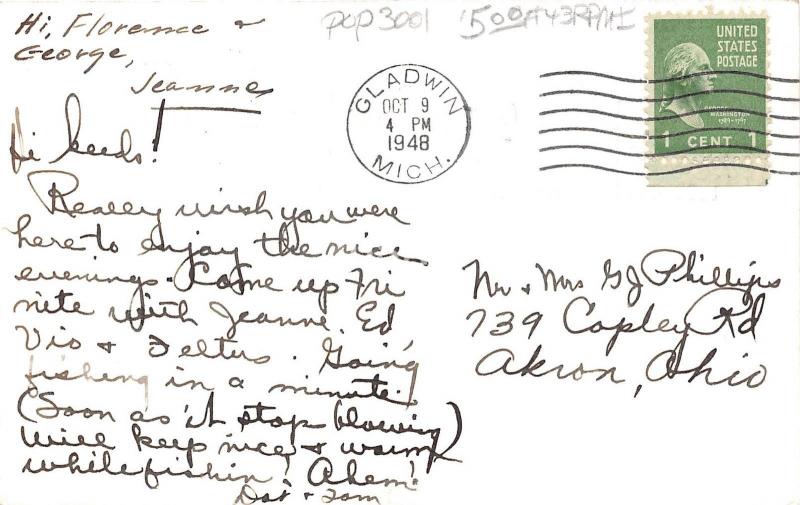 Hi, Florence &
George,
Jeanne
POP3001
500
GLADWIN
OCT 9
4 PM
1948
MICH.
UNITED
STATES
POSTAGE
GEORGE
WASHINGTON
1789-1797
1 CENT 1
Hi keeds!
Really wish you were
here to enjoy the nice
evenings. Come up Fri
nite with Jeanne, Ed
Vio & Feltus. Going
fishing in a minute.
(Soon as it stop blowing)
Will keep nice & warm
while fishin'! Ahem!
Dot & Tom
Mr & Mrs GJ Phillips
739 Copley Rd
Akron, Ohio